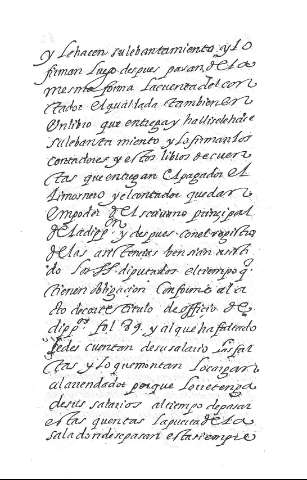 y Lehacen sulebantamiento y Lo
firman luego despues pasan de La
mesma forma la cuenta del con
tador el qual da tambien en
Un libro que entrega y halli se hace
su lebantamiento y lo firman los
contadores y estos libros de cuen
tas que entregan el pagador el
limosnero y el contador quedan
em poder del secretario principal
de la dipp.on y despues con el registro
de las asistencias
do los ss. diputados el tiempo q
tienen obligacion conforme al a
to de corte titulo de officio de
dipp.os fol 89. y al que ha faltado
le des cuentan de su salario las fal
tas y lo que montan lo cargan
al arrendador porque lo retenga
de sus salarios al tiempo de pasar
estas quentas la puerta de la
sala donde se pasan esta siempre